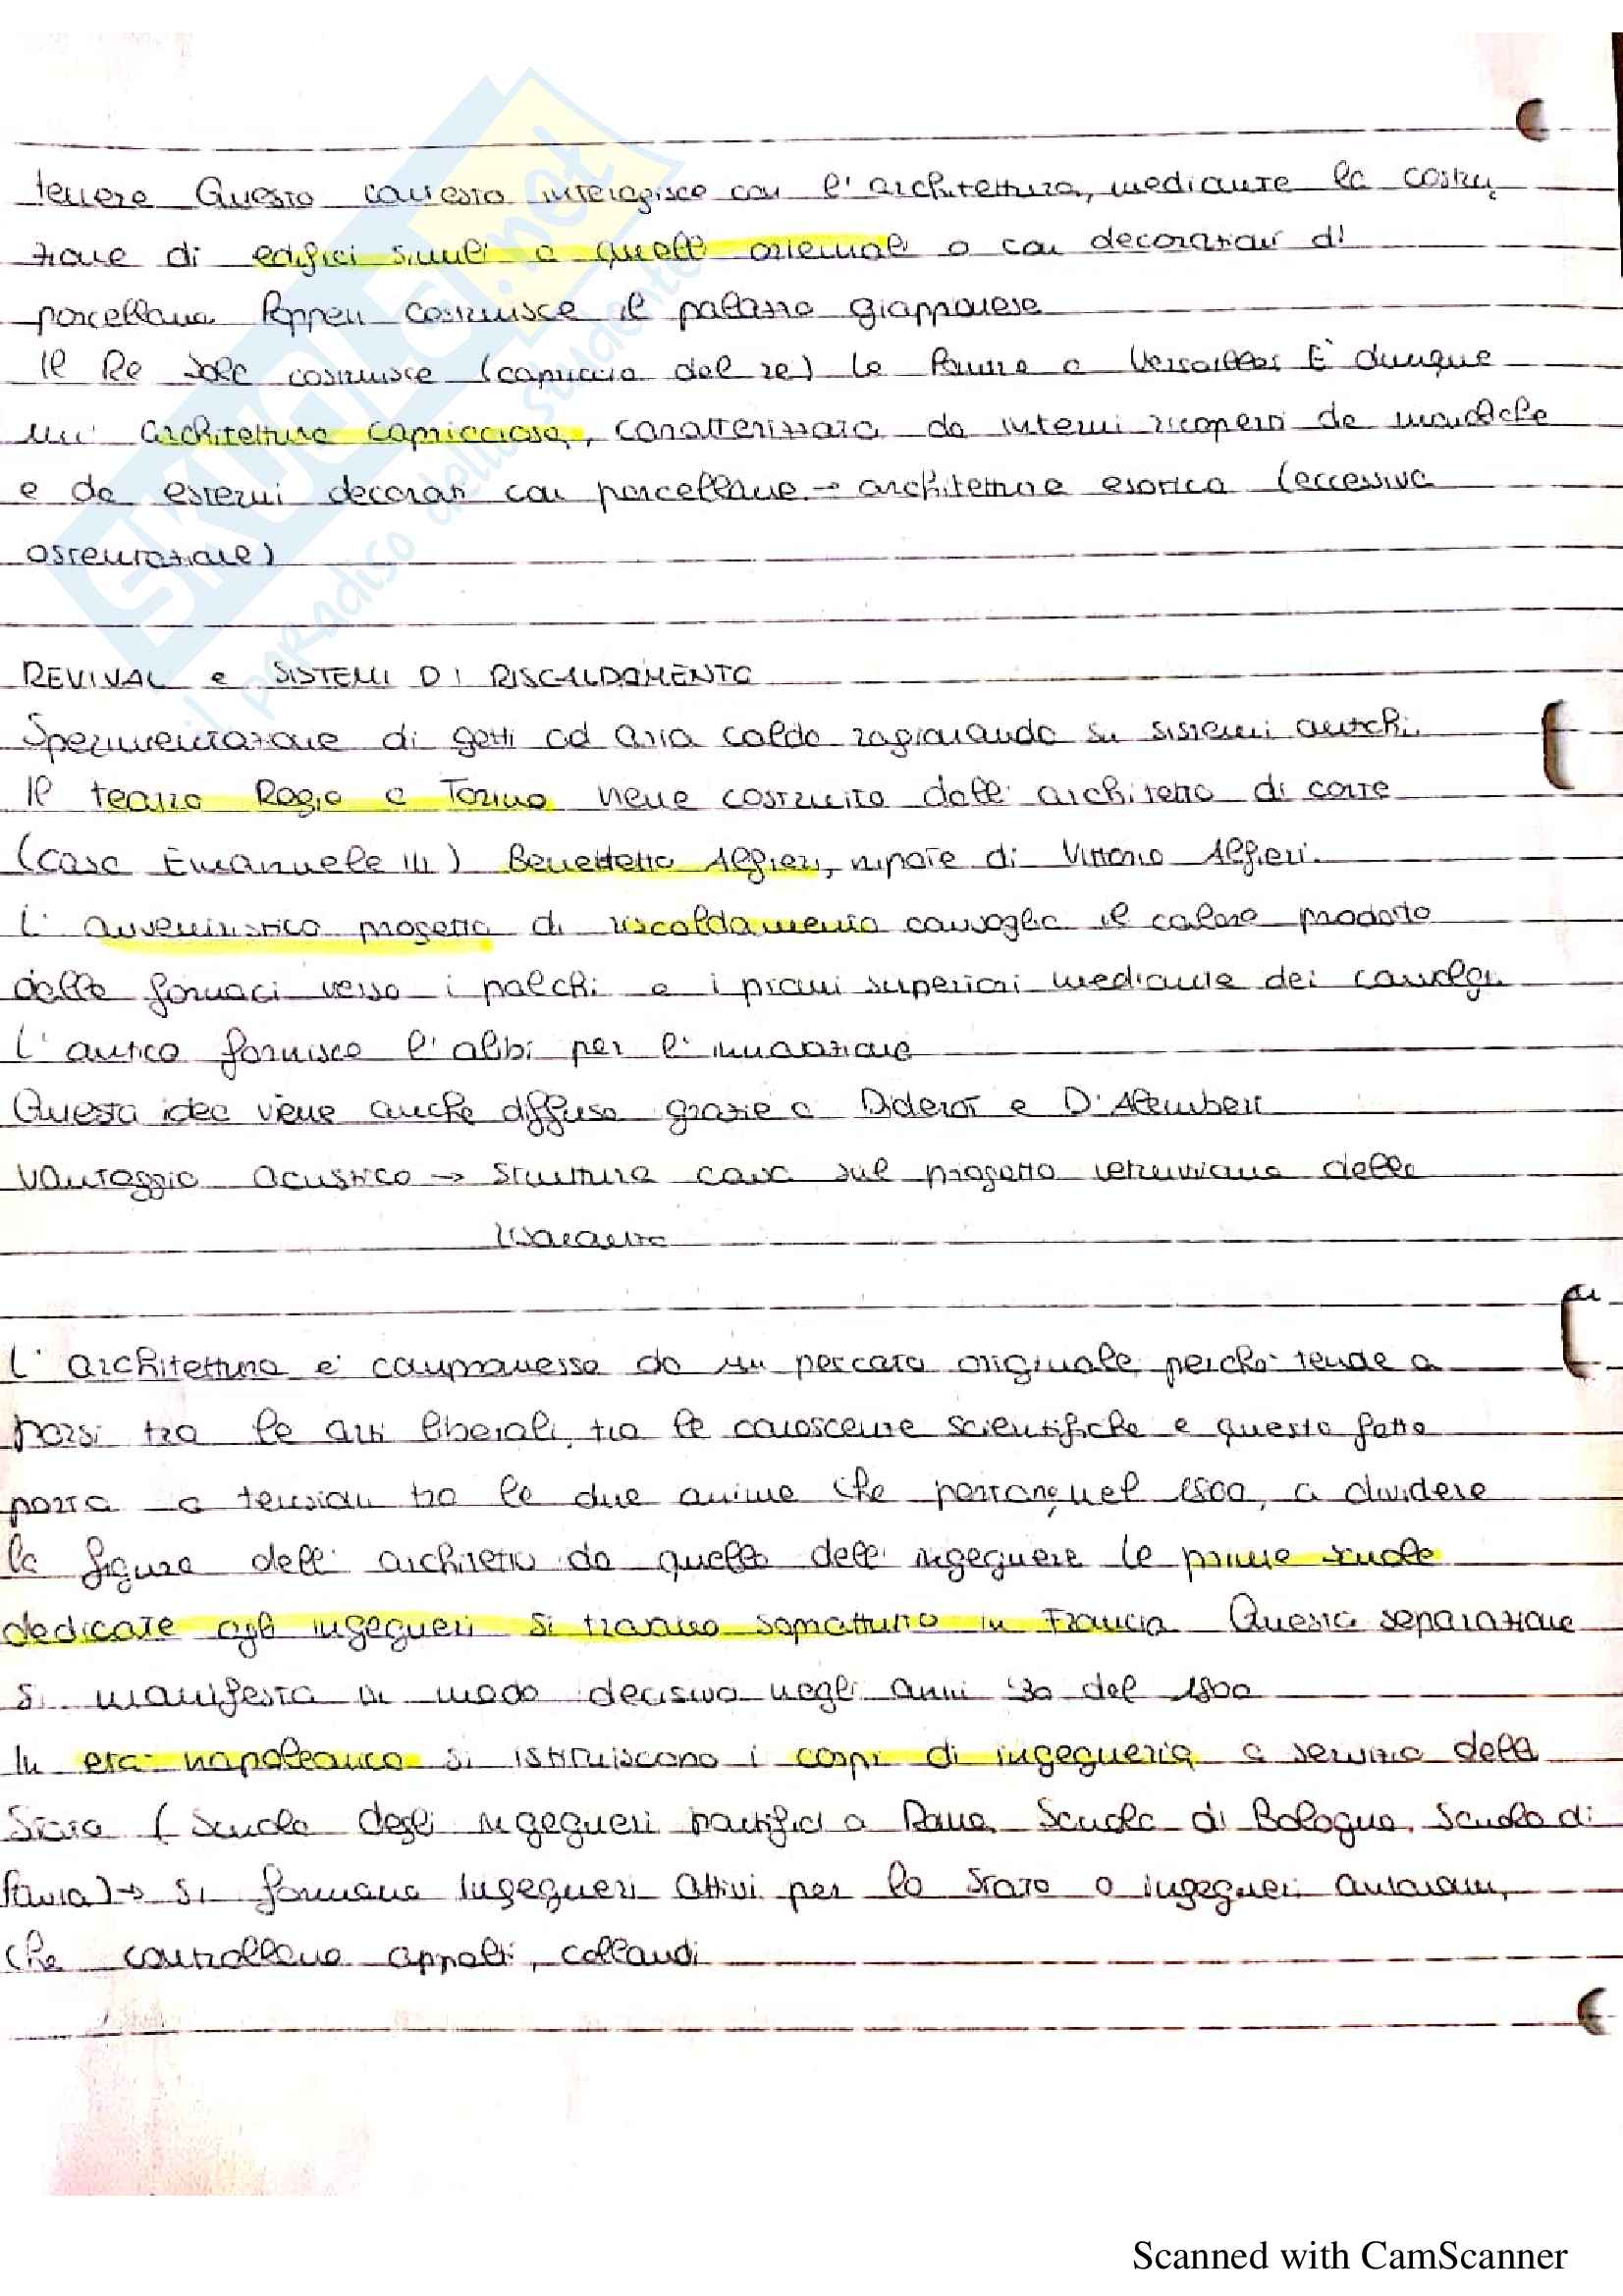 tenere Questo contesto interagisce con l'architettura, mediante la costru
zione di edifici simili a quelli orientali o con decorazioni di
porcellana Poppen costruisce il palazzo giapponese
Il Re Sole costruisce (capriccio del re) la a Versailles È dunque
un' architettura capricciosa, caratterizzata da interni ricoperti da maioliche
e da esterni decorati con porcellane → architettura esotica (eccessiva
ostentazione)
REVIVAL e SISTEMI DI RISCALDAMENTO
Sperimentazione di getti ad aria calda ragionando su sistemi antichi
Il teatro Regio a Torino viene costruito dall' architetto di corte
(casa Emanuele III) Benedetto Alfieri, nipote di Vittorio Alfieri.
L' avveniristico progetto di riscaldamento convoglia il calore prodotto
dalle fornaci verso i palchi e i piani superiori mediante dei
L' antico fornisce l' alibi per l' innovazione
Questa idea viene anche diffusa grazie a Diderot e D'Alembert
Vantaggio acustico → struttura cava sul progetto vitruviano della
risonanza
L' architettura e' compromessa da un peccato originale, perchè tende a
porsi tra le arti liberali, tra le conoscenze scientifiche e questo fatto
porta a tensioni tra le due anime che portano, nel 1800, a dividere
la figura dell' architetto da quella dell' ingegnere Le prime scuole
dedicate agli ingegneri si trovano soprattutto in Francia Questa separazione
si manifesta in modo decisivo negli anni '30 del 1800
In eta' napoleonica si istituiscono i corpi di ingegneria a servizio dello
Stato (Scuola degli ingegneri pontifici a Roma, Scuola di Bologna, Scuola di
Pavia) → si formano ingegneri attivi per lo Stato o ingegneri autonomi,
che controllano appalti, collaudi
SKUOLA.net
il paradiso dello studente
Scanned with CamScanner